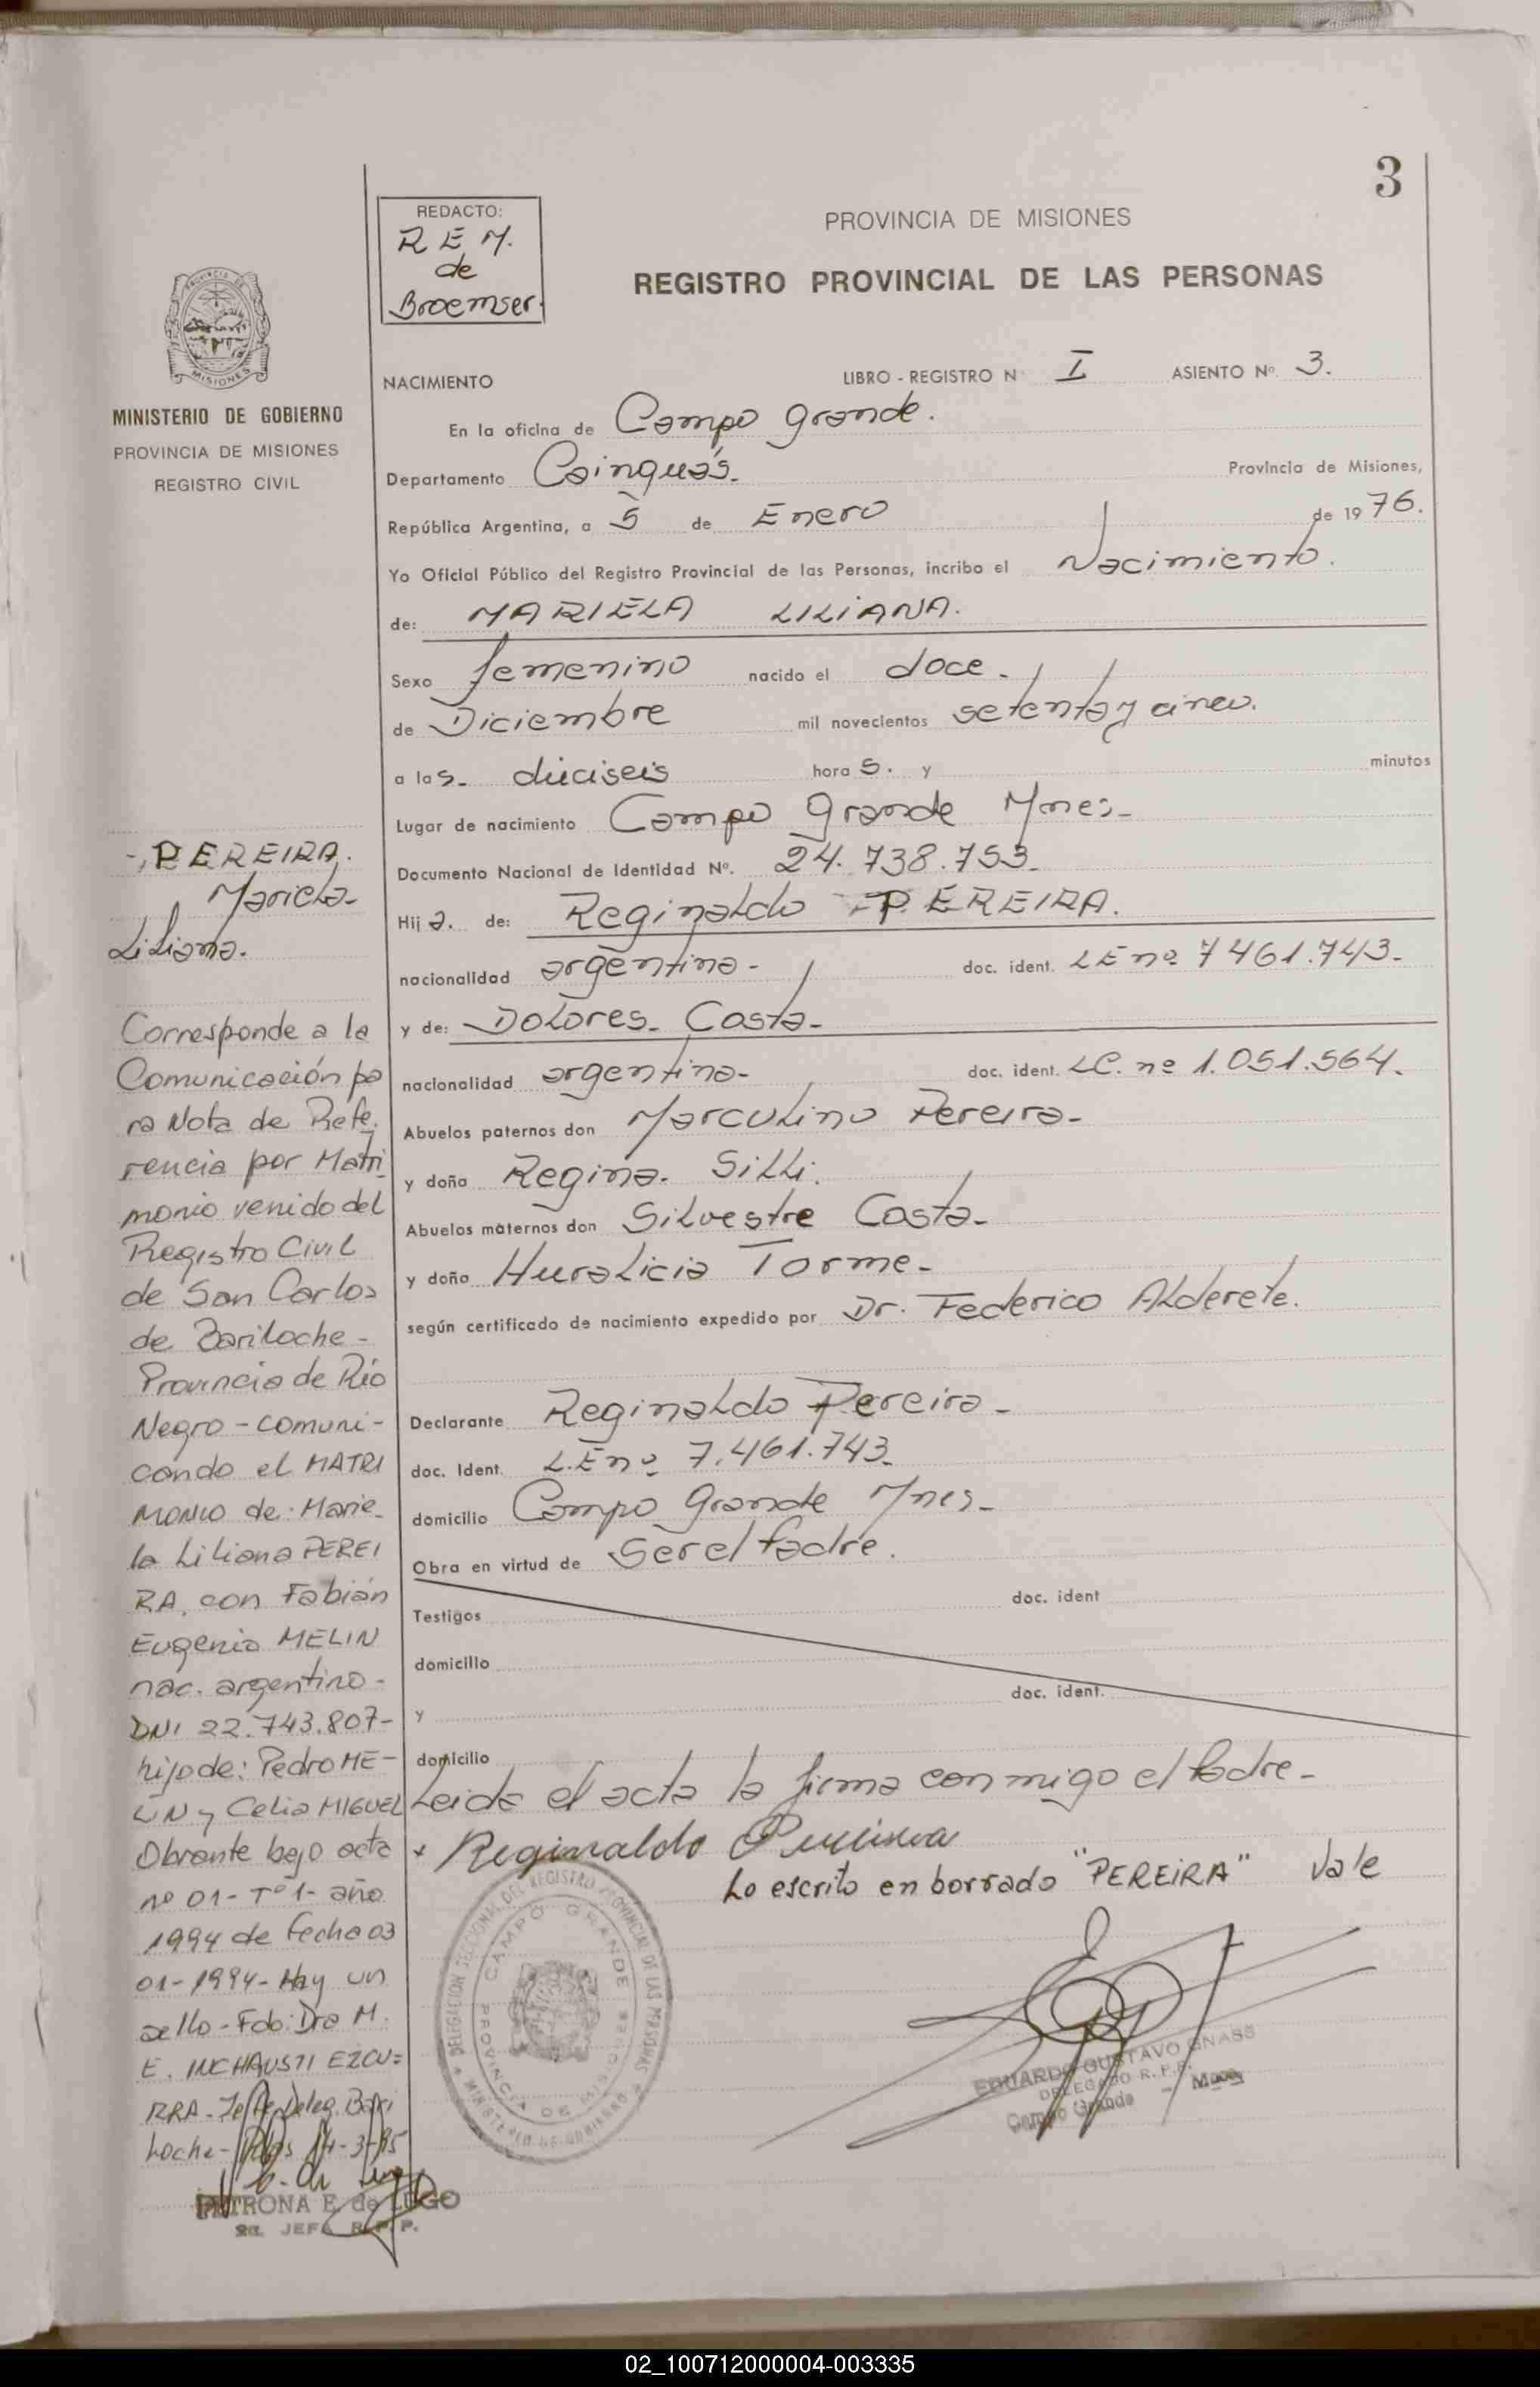 3
REDACTO:
R E M.
de
Broemser.
PROVINCIA DE MISIONES
REGISTRO PROVINCIAL DE LAS PERSONAS
MISIONES
MINISTERIO DE GOBIERNO
PROVINCIA DE MISIONES
REGISTRO CIVIL
NACIMIENTO LIBRO - REGISTRO Nº I ASIENTO Nº 3.
En la oficina de Campo grande.
Departamento Cainguás. Provincia de Misiones,
República Argentina, a 5 de Enero de 19 76.
Yo Oficial Público del Registro Provincial de las Personas, incribo el Nacimiento.
de: MARIELA LILIANA.
Sexo femenino nacido el doce.
de Diciembre mil novecientos setenta y cinco.
a las. dieciseis hora s. y minutos
Lugar de nacimiento Campo Grande Mnes.
Documento Nacional de Identidad Nº. 24.738.753.
Hij a. de: Reginaldo PEREIRA.
nacionalidad argentina - doc. ident. LE nº 7461.743.
y de: Dolores. Costa.
nacionalidad argentina - doc. ident. LC. nº 1.051.564.
Abuelos paternos don Marculino Pereira-
y doña Regina. Silli.
Abuelos maternos don Silvestre Costa-
y doña Huralicia Torme-
según certificado de nacimiento expedido por Dr. Federico Alderete.
Declarante Reginaldo Pereira-
doc. Ident. L.E nº 7.461.743.
domicilio Campo Grande Mnes-
Obra en virtud de Ser el Padre.
Testigos doc. ident
domicilio
y doc. ident.
domicilio
Leida el acta la firma conmigo el Padre-
Reginaldo
Lo escrito en borrado "PEREIRA" Vale
DELEGACION SECCIONAL DEL REGISTRO PROVINCIAL DE LAS PERSONAS
MINISTERIO DE GOBIERNO
CAMPO GRANDE
PROVINCIA DE MISIONES
EDUARDO GUSTAVO GNASS
DELEGADO R. P. P.
Campo Grande - Mnes
- PEREIRA.
Mariela-
Liliana.
Corresponde a la
Comunicación pa
ra Nota de Refe.
rencia por Matri
monio venido del
Registro Civil
de San Carlos
de Bariloche-
Provincia de Río
Negro - comuni-
cando el MATRI
MONIO de: Marie-
la Liliana PEREI
RA, con Fabián
Eugenio MELIN
nac. argentino-
DNI 22.743.807-
hijo de: Pedro ME-
LIN y Celia MIGUEL
Obrante bajo acta
nº 01- Tº 1- año
1994 de fecha 03
01-1994- Hay un
sello - Fdo: Dra M.
E. INCHAUSTI EZCU=
RRA - Jefe Deleg. Bari
loche- 14-3-95
PETRONA E. de LUGO
JEFA R. P. P.
02_100712000004-003335